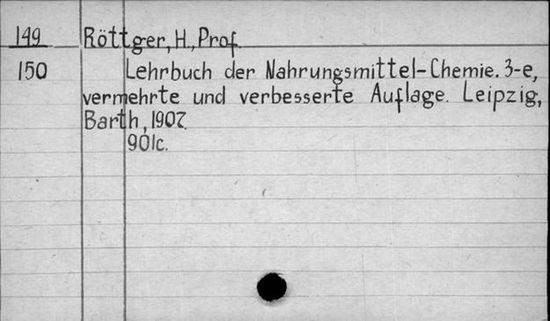 149 Röttger, H., Prof.
150 Lehrbuch der Nahrungsmittel-Chemie. 3-e,
vermehrte und verbesserte Auflage. Leipzig,
Barth, 1907.
901c.